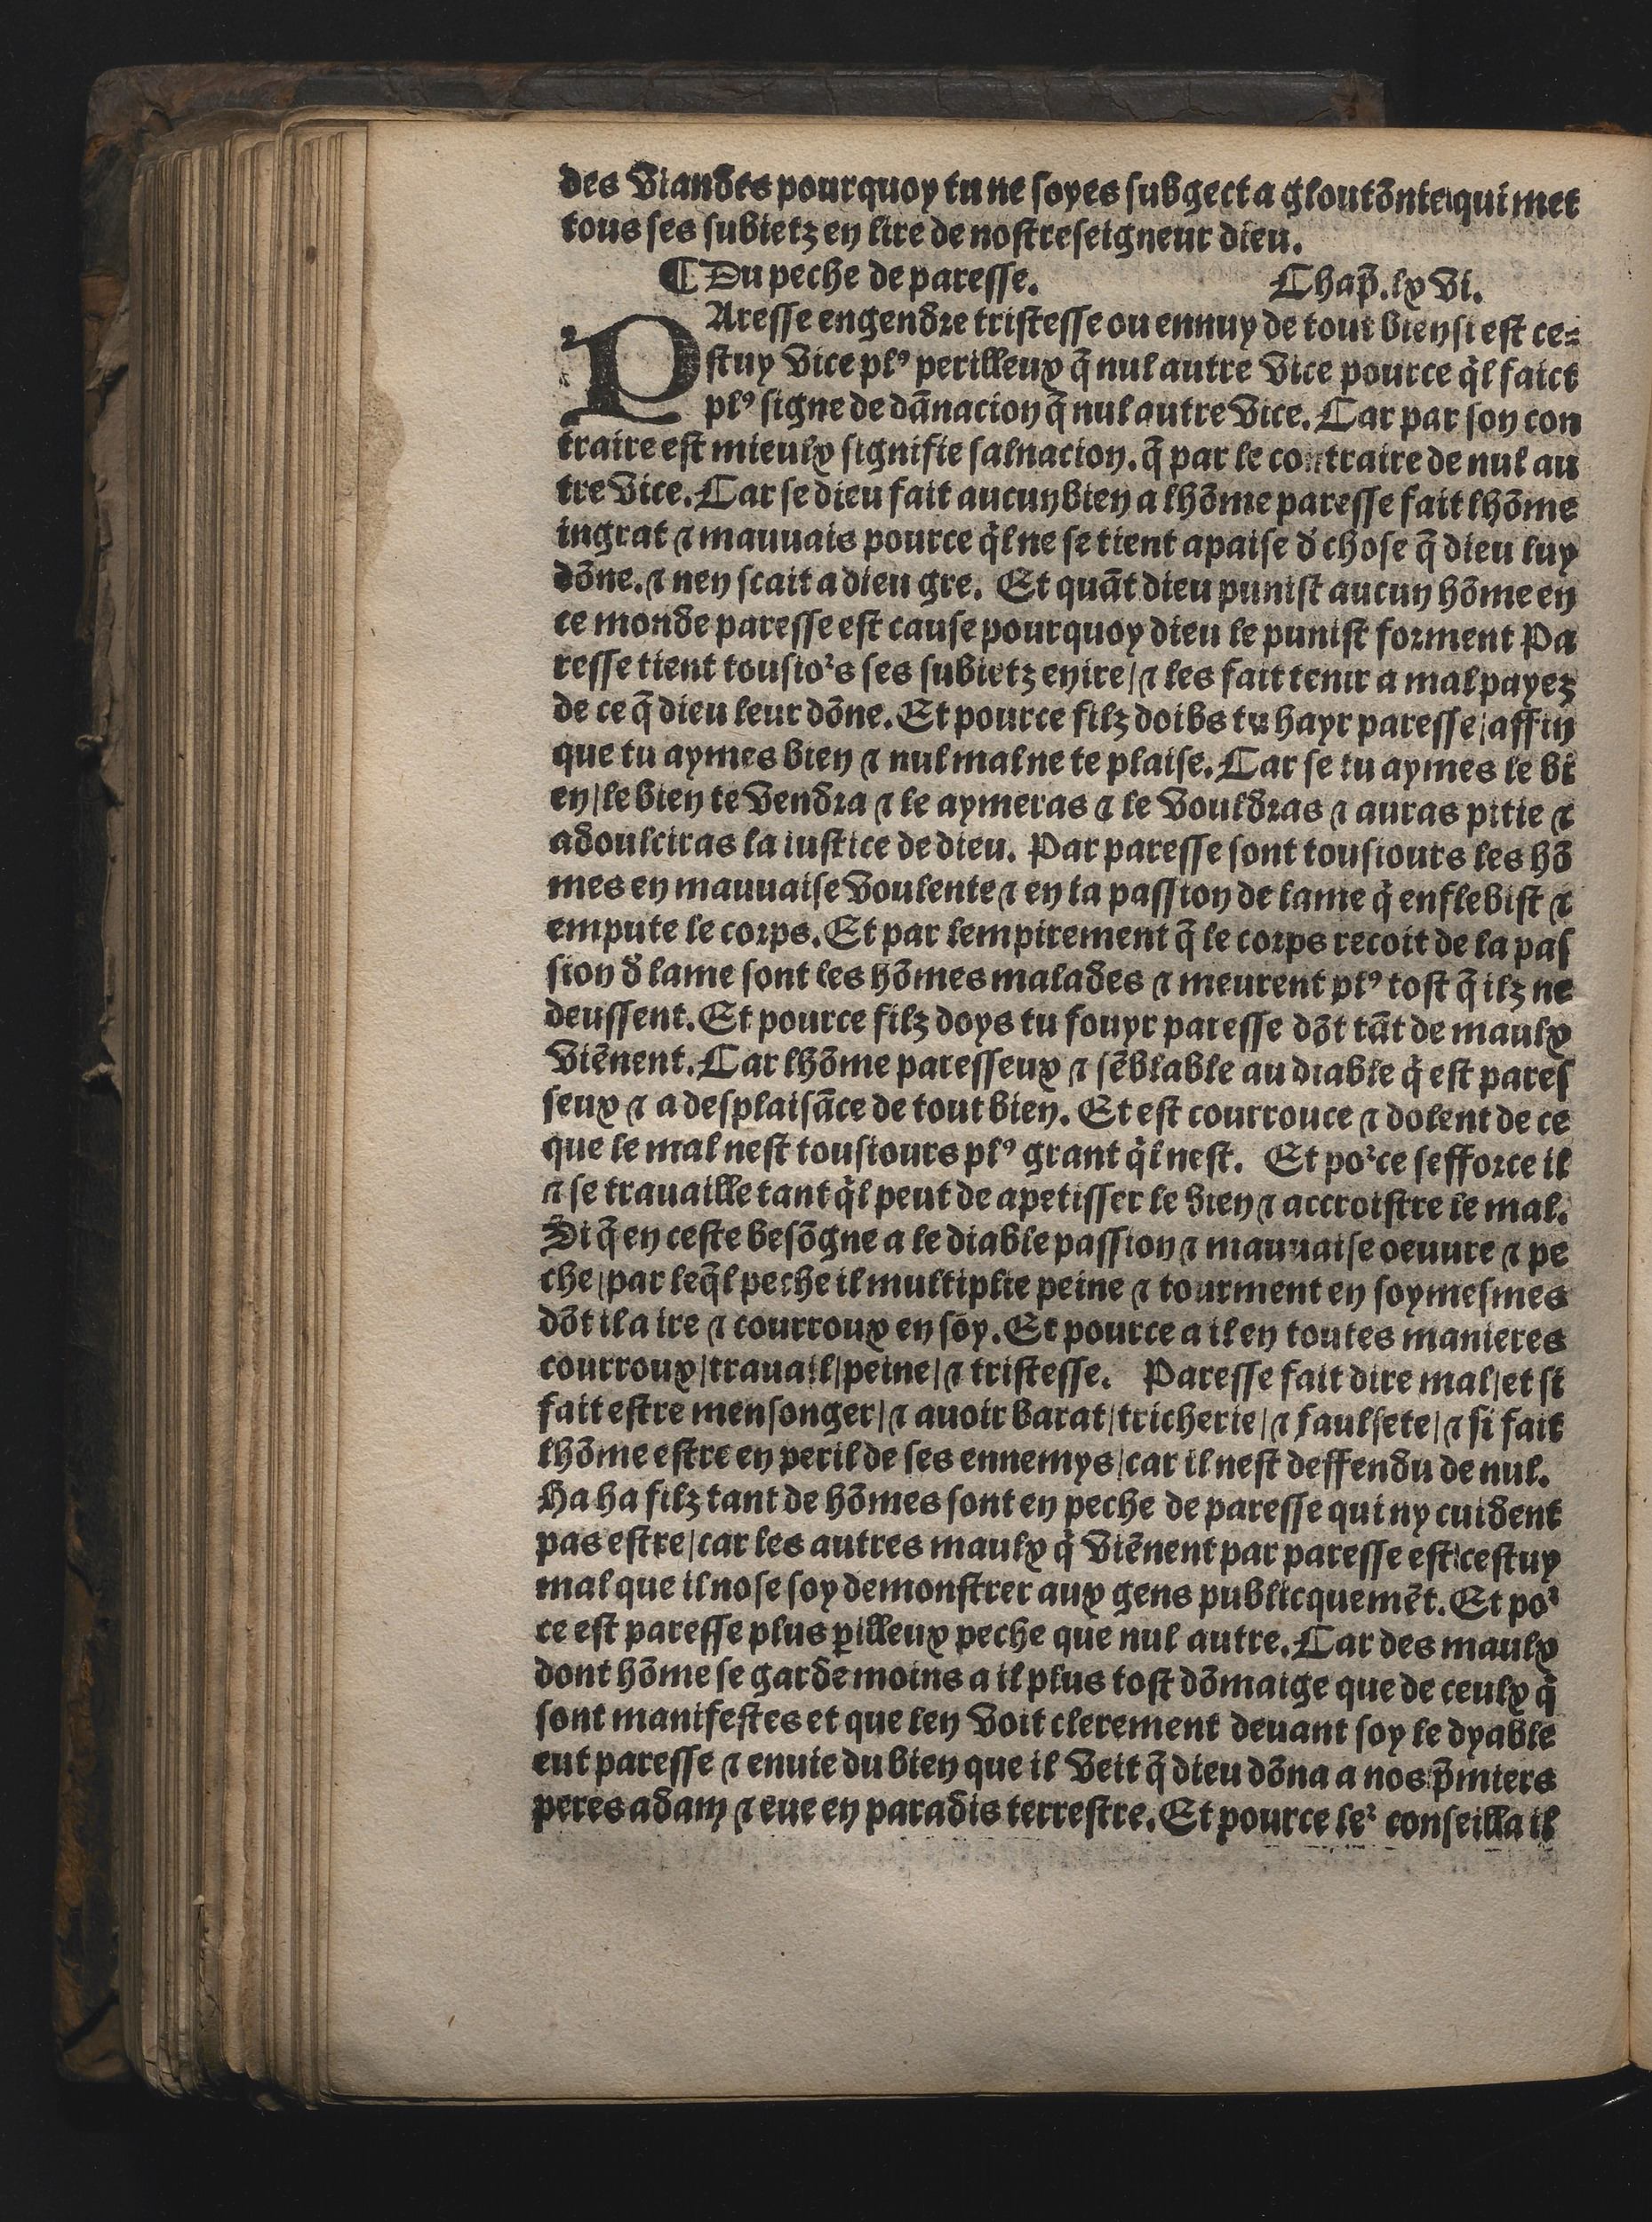 des Viandes pourquoy tu ne soyes subgect a gloutõnte/qui met
tous ses subietz en lire de nostreseigneur dieu.
¶ Du peche de paresse. Chap̃.lxVi.
PAresse engendre tristesse ou ennuy de tout bien si est ce=
stuy Vice plꝰ perilleux q̃ nul autre Vice pource q̃l faict
plꝰ signe de dãnacion q̃ nul autre Vice. Car par son con
traire est mieulx signifie salnacion. q̃ par le contraire de nul au
tre Vice. Car se dieu fait aucun bien a lhõme paresse fait lhõme
ingrat ⁊ mauuais pource q̃l ne se tient apaise d̃ chose q̃ dieu luy
dõne. ⁊ nen scait a dieu gre. Et quãt dieu punist aucun hõme en
ce monde paresse est cause pourquoy dieu le punist forment Pa
resse tient tousioᷣs ses subietz en ire/⁊ les fait tenir a mal payez
de ce q̃ dieu leur dõne. Et pource filz doibs tu hayr paresse/affin
que tu aymes bien ⁊ nul mal ne te plaise. Car se tu aymes le bi
en/le bien te Vendra ⁊ le aymeras ⁊ le Vouldras ⁊ auras pitie ⁊
adoulciras la iustice de dieu. Par paresse sont tousiours les hõ
mes en mauuaise Voulente ⁊ en la passion de lame q̃ enflebist ⁊
empute le corps. Et par lempirement q̃ le corps recoit de la pas
sion d̃ lame sont les hõmes malades ⁊ meurent plꝰ tost q̃ ilz ne
deussent. Et pource filz doys tu fouyr paresse dõt tãt de maulx
Viẽnent. Car lhõme paresseux ⁊ sẽblable au diable q̃ est pares
seux ⁊ a desplaisãce de tout bien. Et est courrouce ⁊ dolent de ce
que le mal nest tousiours plꝰ grant q̃l nest. Et poᷣce sefforce il
⁊ se trauaille tant q̃l peut de apetisser le bien ⁊ accroistre le mal.
Di q̃ en ceste besõgne a le diable passion ⁊ mauuaise oeuure ⁊ pe
che/par leq̃l peche il multiplie peine ⁊ tourment en soymesmes
dõt il a ire ⁊ courroux en soy. Et pource a il en toutes manieres
courroux/trauail/peine/⁊ tristesse. Paresse fait dire mal/et si
fait estre mensonger/⁊ auoir barat/tricherie/⁊ faulsete/⁊ si fait
lhõme estre en peril de ses ennemys/car il nest deffendu de nul.
Ha ha filz tant de hõmes sont en peche de paresse qui ny cuident
pas estre/car les autres maulx q̃ Viẽnent par paresse est cestuy
mal que il nose soy demonstrer aux gens publicquemẽt. Et poᷣ
ce est paresse plus ꝑilleux peche que nul autre. Car des maulx
dont hõme se garde moins a il plus tost dõmaige que de ceulx q̃
sont manifestes et que len Voit clerement deuant soy le dyable
eut paresse ⁊ enuie du bien que il Veit q̃ dieu dõna a nos p̃miers
peres adam ⁊ eue en paradis terrestre. Et pource leᷣ conseilla il